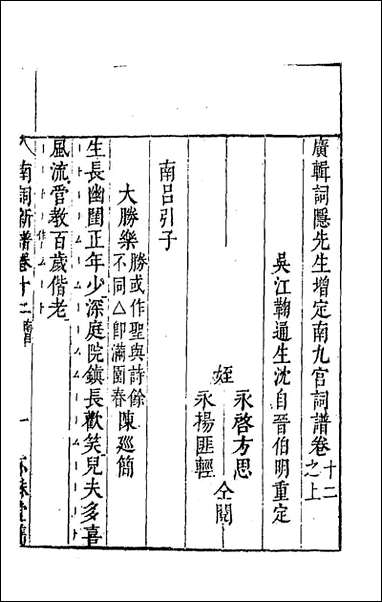 廣輯詞隱先生增定南九宮詞譜卷十二之上
吳江鞠通生沈自晉伯明重定
姪
永啓方思
永揚匪輕
仝閱
南呂引子
大勝樂勝或作聖與詩餘不同△卽滿園春陳巡簡
生長幽閨正年少深庭院鎮長歡笑兒夫多喜
風流管教百歲偕老
南詞新譜卷十二
一